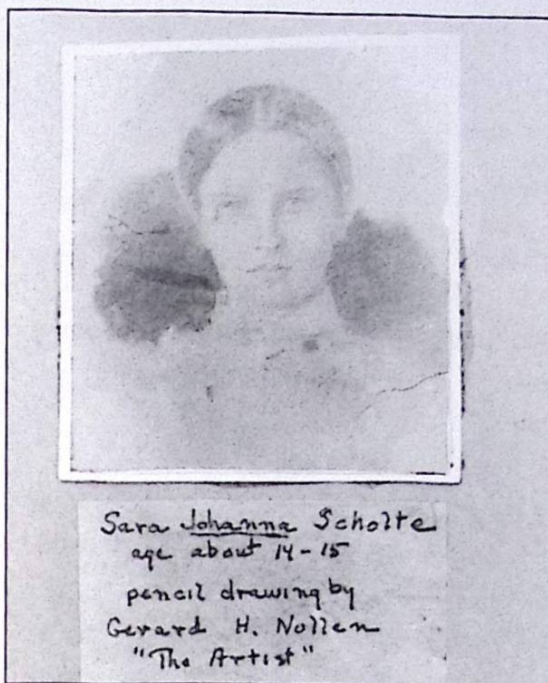 Sara Johanna Scholte
age about 14-15
pencil drawing by
Gerard H. Nollen
"The Artist"